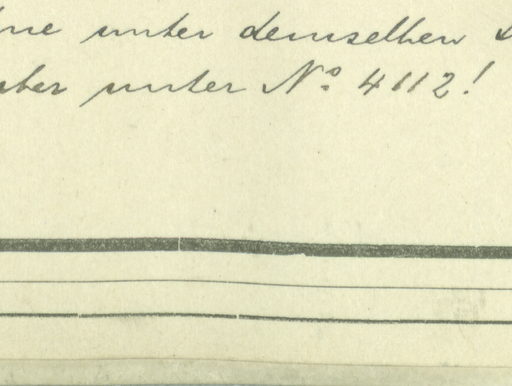 unter demselben
aber unter No 4112!